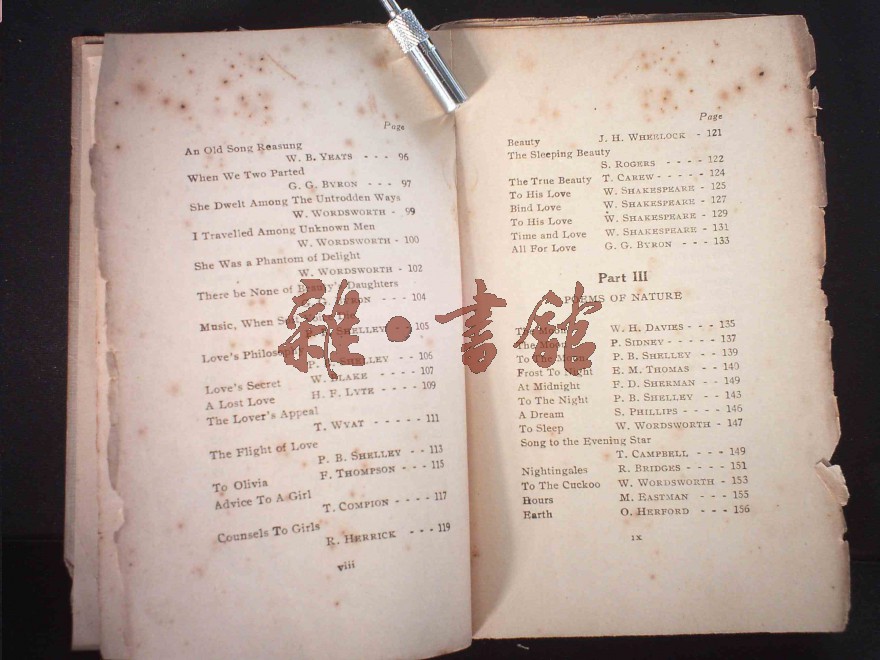 Page
An Old Song Reasung
W. B. YEATS - - - 96
When We Two Parted
G. G. BYRON - - - 97
She Dwelt Among The Untrodden Ways
W. WORDSWORTH - 99
I Travelled Among Unknown Men
W. WORDSWORTH - 100
She Was a Phantom of Delight
W. WORDSWORTH - 102
There be None of Beauty's Daughters
G. BYRON - - - 104
Music, When
P. B. SHELLEY - - 105
Love's Philosophy
P. SHELLEY - - 106
Love's Secret W. BLAKE - - - - 107
A Lost Love H. F. LYTE - - - - 109
The Lover's Appeal
T. WYAT - - - - - 111
The Flight of Love
P. B. SHELLEY - - 113
To Olivia F. THOMPSON - - - 115
Advice To A Girl
T. COMPION - - - - 117
Counsels To Girls
R. HERRICK - - - 119
viii
Page
Beauty J. H. WHEELOCK - 121
The Sleeping Beauty
S. ROGERS - - - - 122
The True Beauty T. CAREW - - - - - 124
To His Love W. SHAKESPEARE - 125
Bind Love W. SHAKESPEARE - 127
To His Love W. SHAKESPEARE - 129
Time and Love W. SHAKESPEARE - 131
All For Love G. G. BYRON - - - 133
Part III
POEMS OF NATURE
The Moon W. H. DAVIES - - - 135
The Moon P. SIDNEY - - - - - 137
To The Moon P. B. SHELLEY - - 139
Frost To Night E. M. THOMAS - - - 140
At Midnight F. D. SHERMAN - - 149
To The Night P. B. SHELLEY - - 143
A Dream S. PHILLIPS - - - - - 146
To Sleep W. WORDSWORTH - 147
Song to the Evening Star
T. CAMPBELL - - - 149
Nightingales R. BRIDGES - - - - 151
To The Cuckoo W. WORDSWORTH - 153
Hours M. EASTMAN - - - 155
Earth O. HERFORD - - - 156
ix
雜·書館